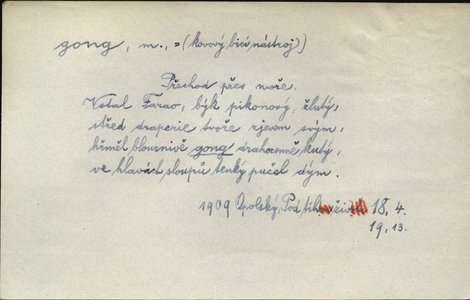 gong, m., = (kovový bicí nástroj)
Přechod přes moře.
Vstal Farao, býk pikonosý žlutý,
střed draperie tvoře zjevem svým,
hřměl blouznivě gong drahocenně kutý,
ve hlavách sloupů tenký pučel dým.
1909 Opolský, Pod 18. 4.
19, 13.